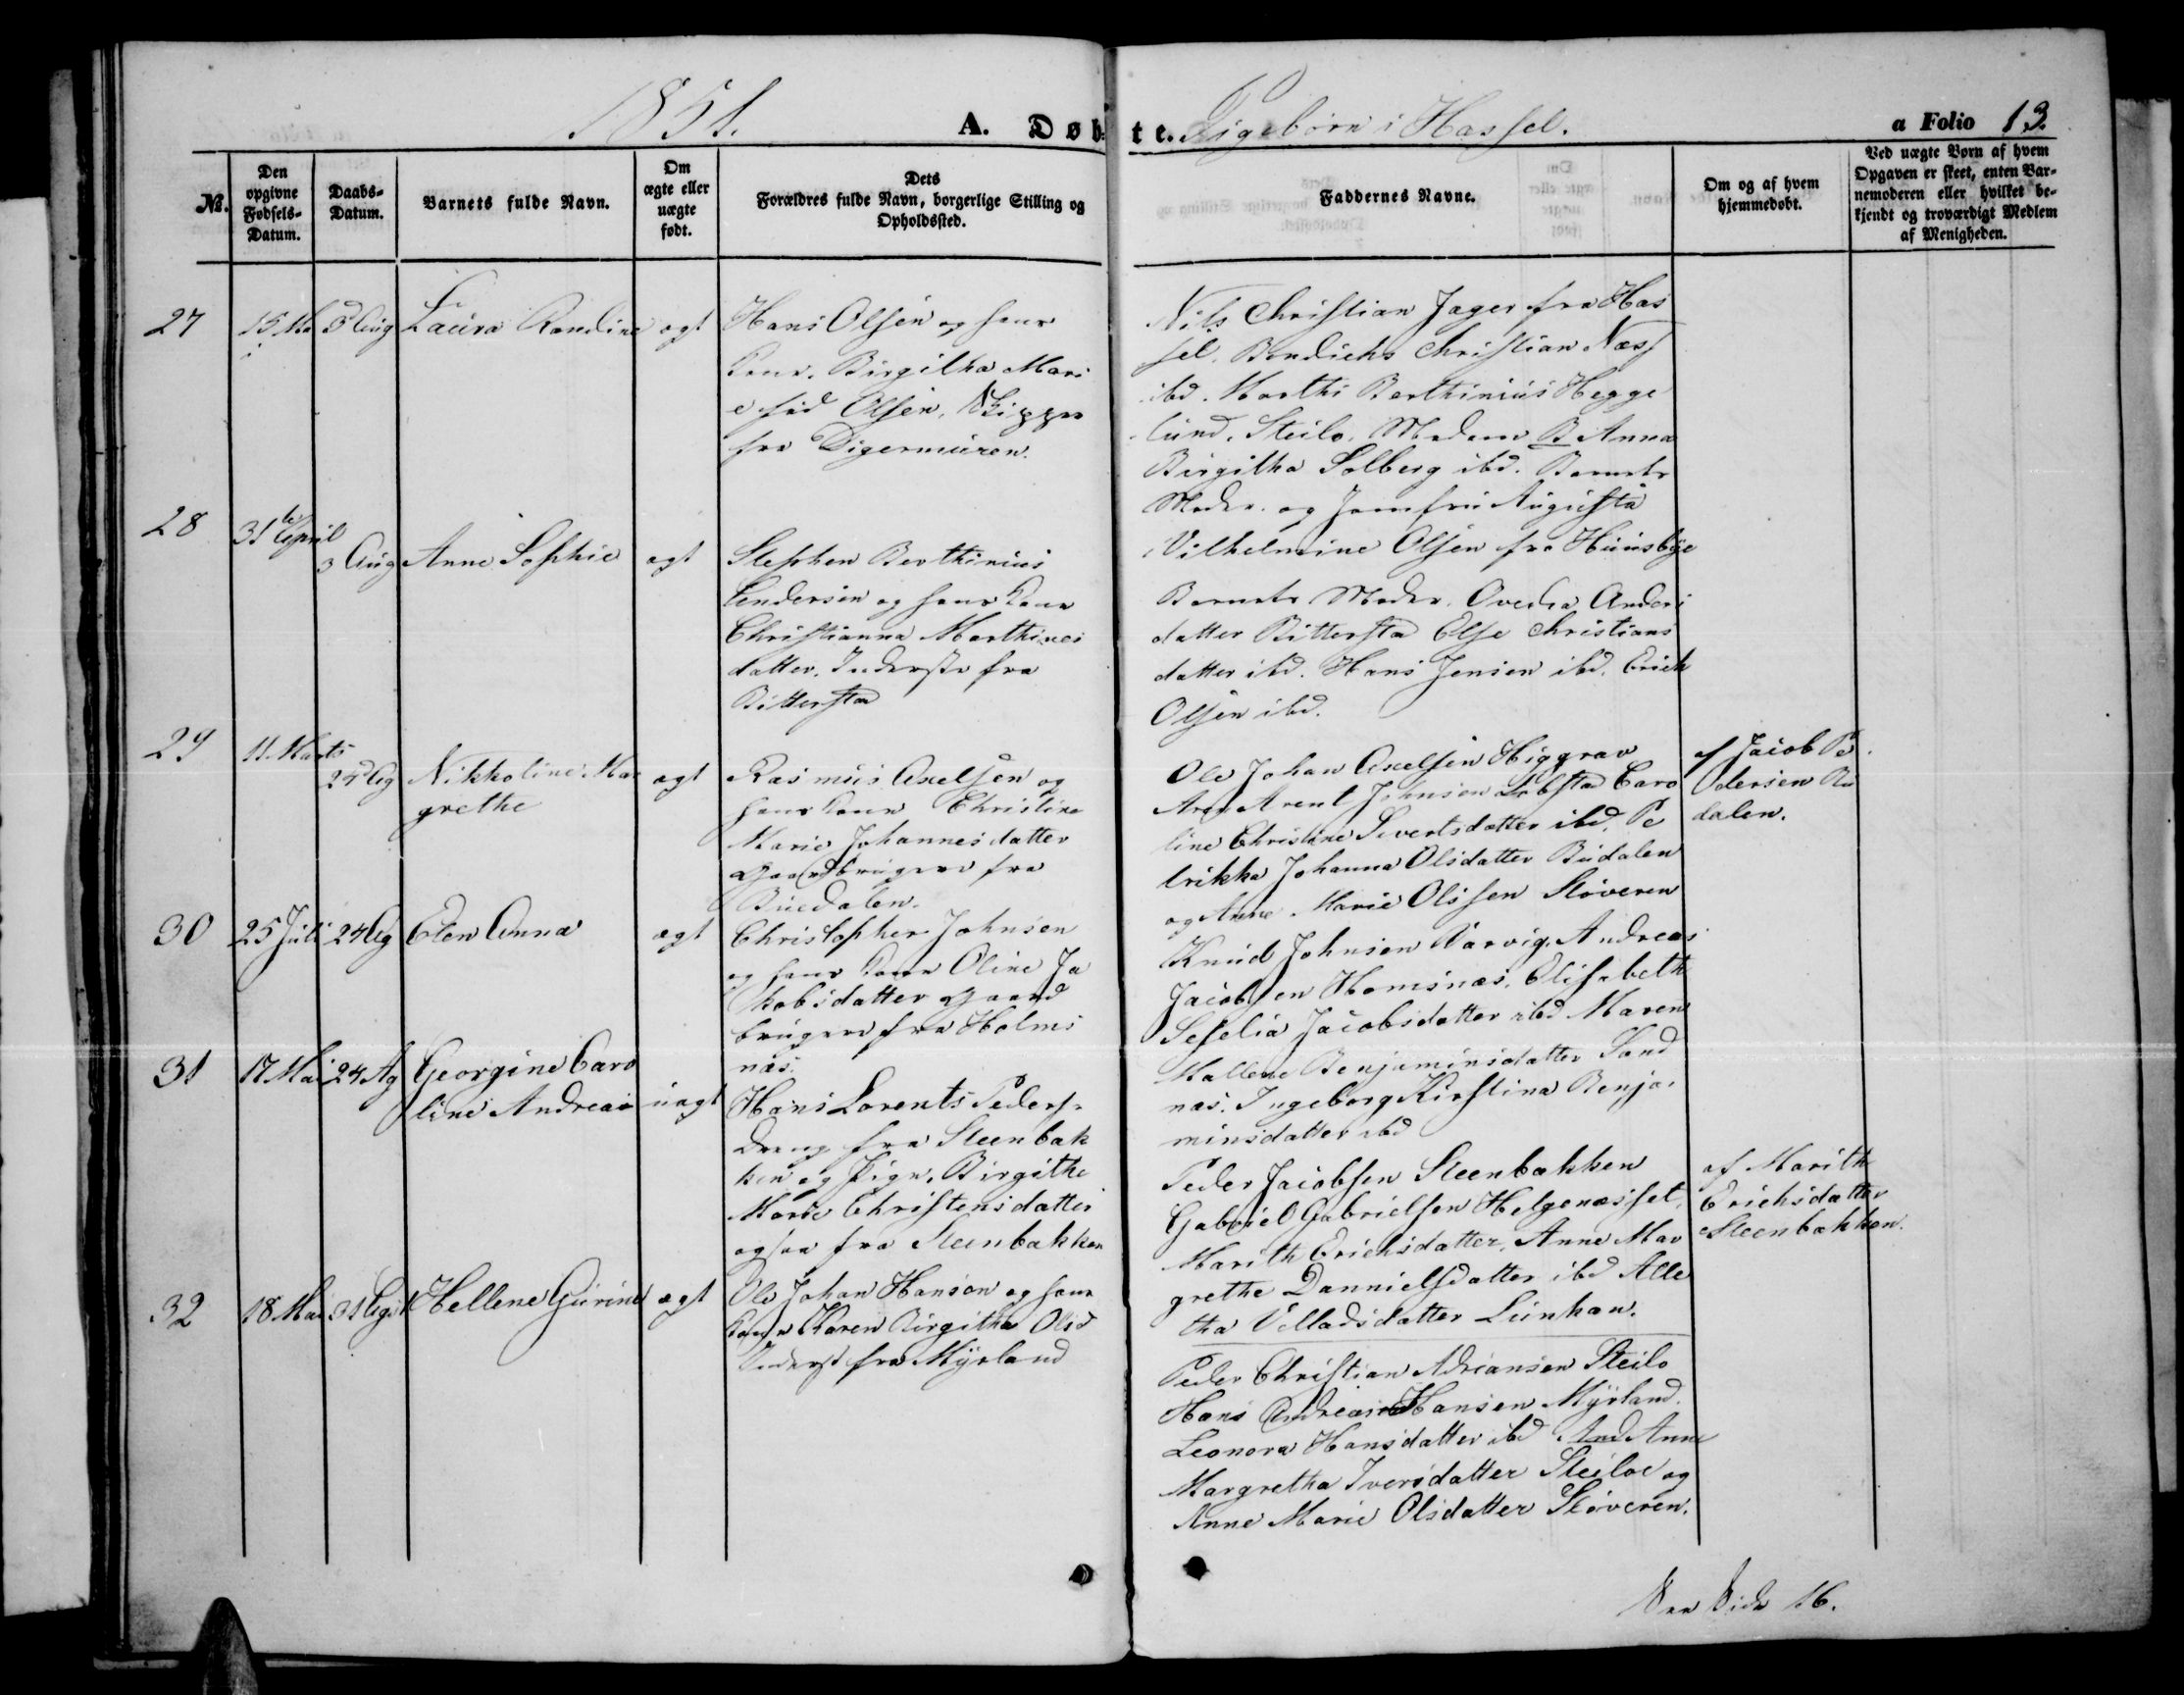 1851.
A. Døb-
te. Pigebørn i Hassel.
a Folio 13.
№.
Den
opgivne
Fødsels-
Datum.
Daabs-
Datum.
Barnets fulde Navn.
Om
ægte eller
uægte
født.
Dets
Forældres fulde Navn, borgerlige Stilling og
Opholdssted.
Faddernes Navne.
Om og af hvem
hjemmedøbt.
Ved uægte Børn af hvem
Opgaven er skeet, enten Bar-
nemoderen eller hvilket be-
kjendt og troværdigt Medlem
af Menigheden.
27
15 Ma
i
3 Aug
Laura Randine
ægt
Hans Olsen og hans
Kone. Birgitha Mari
e fød Olsen, Skipper
fra Digermuren.
Nils Christian Jager fra Has
sel. Bendichs Christian Næss
ibd. Marthi Berthinius Hegge
lund. Steilo. Madam B Anna
Birgitha Solberg ibd. Barnets
Moder. og Jomfru Augusta
Vilhelmine Olsen fra Huusbye
28
31te April
3 Aug
Anne Sophie
ægt
Stephen Berthinius
Endersen og hans Kone
Christianna Marthines
datter. Inderste fra
Bitterstad
Barnets Moder. Ovedia Anders
datter Bitterstad Else Christians
datter ibd. Hans Jensen ibd. Erich
Olsen ibd.
29
11. Marts
24 Ag
Nikkoline Mar
grethe
ægt
Rasmus Axelsen og
hans Kone Christine
Marie Johannesdatter
Gaardbruger fra
Buedalen.
Ole Johan Axelsen Higgrav
Arent Johnson Lobsta Caro
line Christine Sivertsdatter ibd. Pe
trikka Johanna Olsdatter Budalen
og Anne Marie Olssen Støveren
af Jacob Pe
dersen Bu
dalen.
30
25 Juli
24 Ag
Elen Anna
ægt
Christopher Johnsen
og hans Kone Oline Ja
kobsdatter Gaard
bruger fra Holms
næs.
Knud Johnsen Varvig. Andreas
Jacobsen Homsnæs. Elisabeth
Seselia Jacobsdatter ibd Maren
Mallene Benjaminsdatter Sand
næs. Ingeborg Kirstina Benja-
minsdatter ibd
31
17 Mai
24 Ag
Georgine Caro
line Andrea
uægt
Hans Lorents Peders.
Dreng fra Steenbak
ken og Pige. Birgithe
Marie Christensdatter
ogsaa fra Steenbakken
Peder Jacobsen Steenbakken
Gabriel Gabrielsen Helgenæsset.
Marith Erichsdatter. Anne Mar
grethe Dannielsdatter ibd Alle
tha Villadsdatter Lunkan.
af Marith
Erichsdatter
Steenbakken.
32
18 Mai
31 Ag
Hellene Gurine
ægt
Ole Johan Hanson og hans
Kone Karen Birgitha Olsd
Inderst fra Myrland
Peder Christian Adriansen Steilo
Hans Andreas Hansen Myrland.
Leonora Hansdatter ibd And Anne
Margretha Iversdatter Steiloe og
Anne Marie Olsdatter Støveren.
See Side 16.